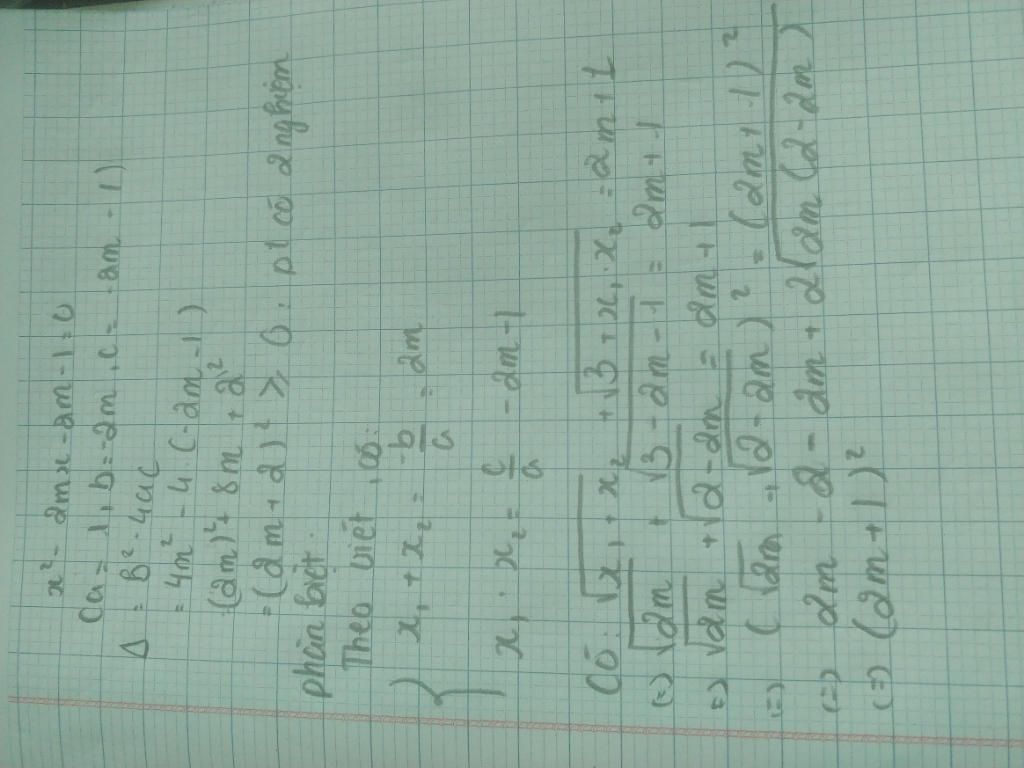 x² - 2mx - 2m - 1 = 0
(a = 1, b = -2m, c = -2m - 1)
Δ = B² - 4ac
= 4m² - 4.(-2m - 1)
(2m)² + 8m + 2²
= (2m + 2)² ≥ 0, pt có 2 nghiệm
phân biệt.
Theo viét, có:
{ x₁ + x₂ = -b/a = 2m
x₁ . x₂ = c/a = -2m - 1
Có: √(x₁ + x₂) + √(3 + x₁.x₂) = 2m + 1
(=) √2m + √(3 - 2m - 1) = 2m + 1
=) √2m + √(2 - 2m) = 2m + 1
(=) (√2m + √(2 - 2m))² = (2m + 1)²
(=) 2m - 2 - 2m + 2√(2m(2 - 2m))
(=) (2m + 1)²